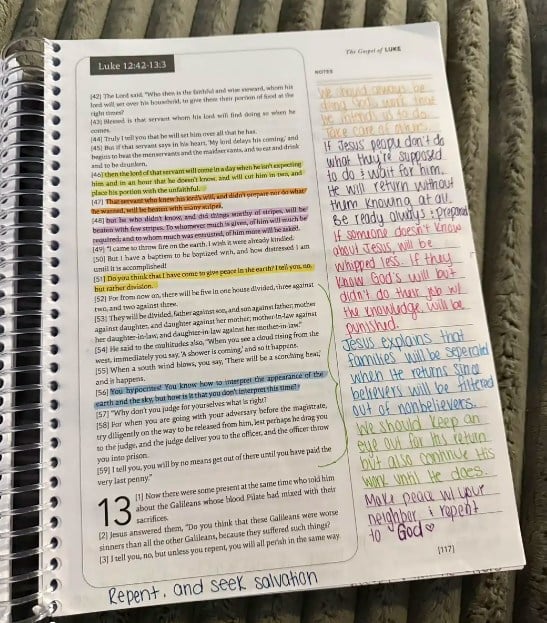 Luke 12:42-13:3
[42] The Lord said, "Who then is the faithful and wise steward, whom his
lord will set over his household, to give them their portion of food at the
right times?
[43] Blessed is that servant whom his lord will find doing so when he
comes.
[44] Truly I tell you that he will set him over all that he has.
[45] But if that servant says in his heart, 'My lord delays his coming,' and
begins to beat the menservants and the maidservants, and to eat and drink
and to be drunken,
[46] then the lord of that servant will come in a day when he isn't expecting
him and in an hour that he doesn't know, and will cut him in two, and
place his portion with the unfaithful.
[47] That servant who knew his lord's will, and didn't prepare nor do what
he wanted, will be beaten with many stripes,
[48] but he who didn't know, and did things worthy of stripes, will be
beaten with few stripes. To whomever much is given, of him will much be
required; and to whom much was entrusted, of him more will be asked.
[49] "I came to throw fire on the earth. I wish it were already kindled.
[50] But I have a baptism to be baptized with, and how distressed I am
until it is accomplished!
[51] Do you think that I have come to give peace in the earth? I tell you, no,
but rather division.
[52] For from now on, there will be five in one house divided, three against
two, and two against three.
[53] They will be divided, father against son, and son against father; mother
against daughter, and daughter against her mother; mother-in-law against
her daughter-in-law, and daughter-in-law against her mother-in-law."
[54] He said to the multitudes also, "When you see a cloud rising from the
west, immediately you say, 'A shower is coming,' and so it happens.
[55] When a south wind blows, you say, 'There will be a scorching heat,'
and it happens.
[56] You hypocrites! You know how to interpret the appearance of the
earth and the sky, but how is it that you don't interpret this time?
[57] "Why don't you judge for yourselves what is right?
[58] For when you are going with your adversary before the magistrate,
try diligently on the way to be released from him, lest perhaps he drag you
to the judge, and the judge deliver you to the officer, and the officer throw
you into prison.
[59] I tell you, you will by no means get out of there until you have paid the
very last penny."
13
[1] Now there were some present at the same time who told him
about the Galileans whose blood Pilate had mixed with their
sacrifices.
[2] Jesus answered them, "Do you think that these Galileans were worse
sinners than all the other Galileans, because they suffered such things?
[3] I tell you, no, but unless you repent, you will all perish in the same way.
The Gospel of LUKE
NOTES
We should always be
doing God's work that
He intends us to do
Take care of others.
If Jesus people don't do
what they're supposed
to do & wait for him.
He will return without
them knowing at all.
Be ready always & prepared
If someone doesn't know
about Jesus, will be
whipped less. If they
know God's will but
didn't do their job w/
the knowledge will be
punished.
Jesus explains that
families will be seperated
when He returns since
believers will be filtered
out of nonbelievers.
We should keep an
eye out for His return
but also continue His
work until He does.
Make peace w/ your
neighbor & repent
to God
[117]
Repent, and seek salvation